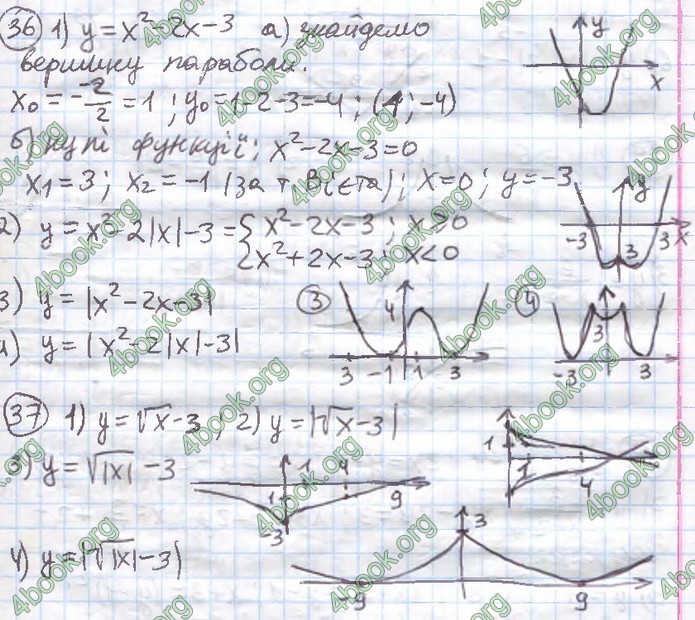 36 1) y = x² - 2x - 3 а) знайдемо
вершину параболи.
x₀ = -\frac{-2}{2} = 1 ; y₀ = 1-2-3 = -4 ; (1; -4)
y
x
б) нулі функції ; x² - 2x - 3 = 0
x₁ = 3 ; x₂ = -1 (за т Вієта) ; x = 0 ; y = -3
2) y = x² - 2|x| - 3 = { x² - 2x - 3 ; x ≥ 0
x² + 2x - 3 ; x < 0
y
-3 3 3 x
3) y = |x² - 2x - 3|
4) y = | x² - 2|x| - 3|
3 4
3 -1 1 3
4 3
-3 3
37 1) y = √x - 3 ; 2) y = |√x - 3|
1 1 4
3) y = √|x| - 3
1 4
1 9
-3
4) y = |√|x| - 3|
3
-9 9
4book.org